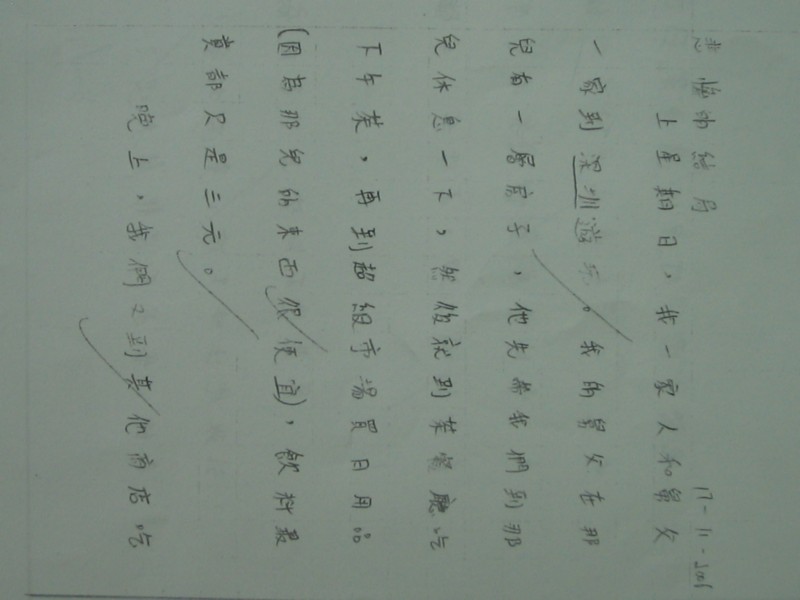 悲慘的結局 17-11-2001
上星期日，我一家人和舅父
一家到深圳遊玩。我的舅父在那
兒有一層房子，他先帶我們到那
兒休息一下，然後就到茶餐廳吃
下午茶，再到超級市場買日用品
(因為那兒的東西很便宜)，飲料最
貴都只是三元。
晚上，我們又到其他商店吃